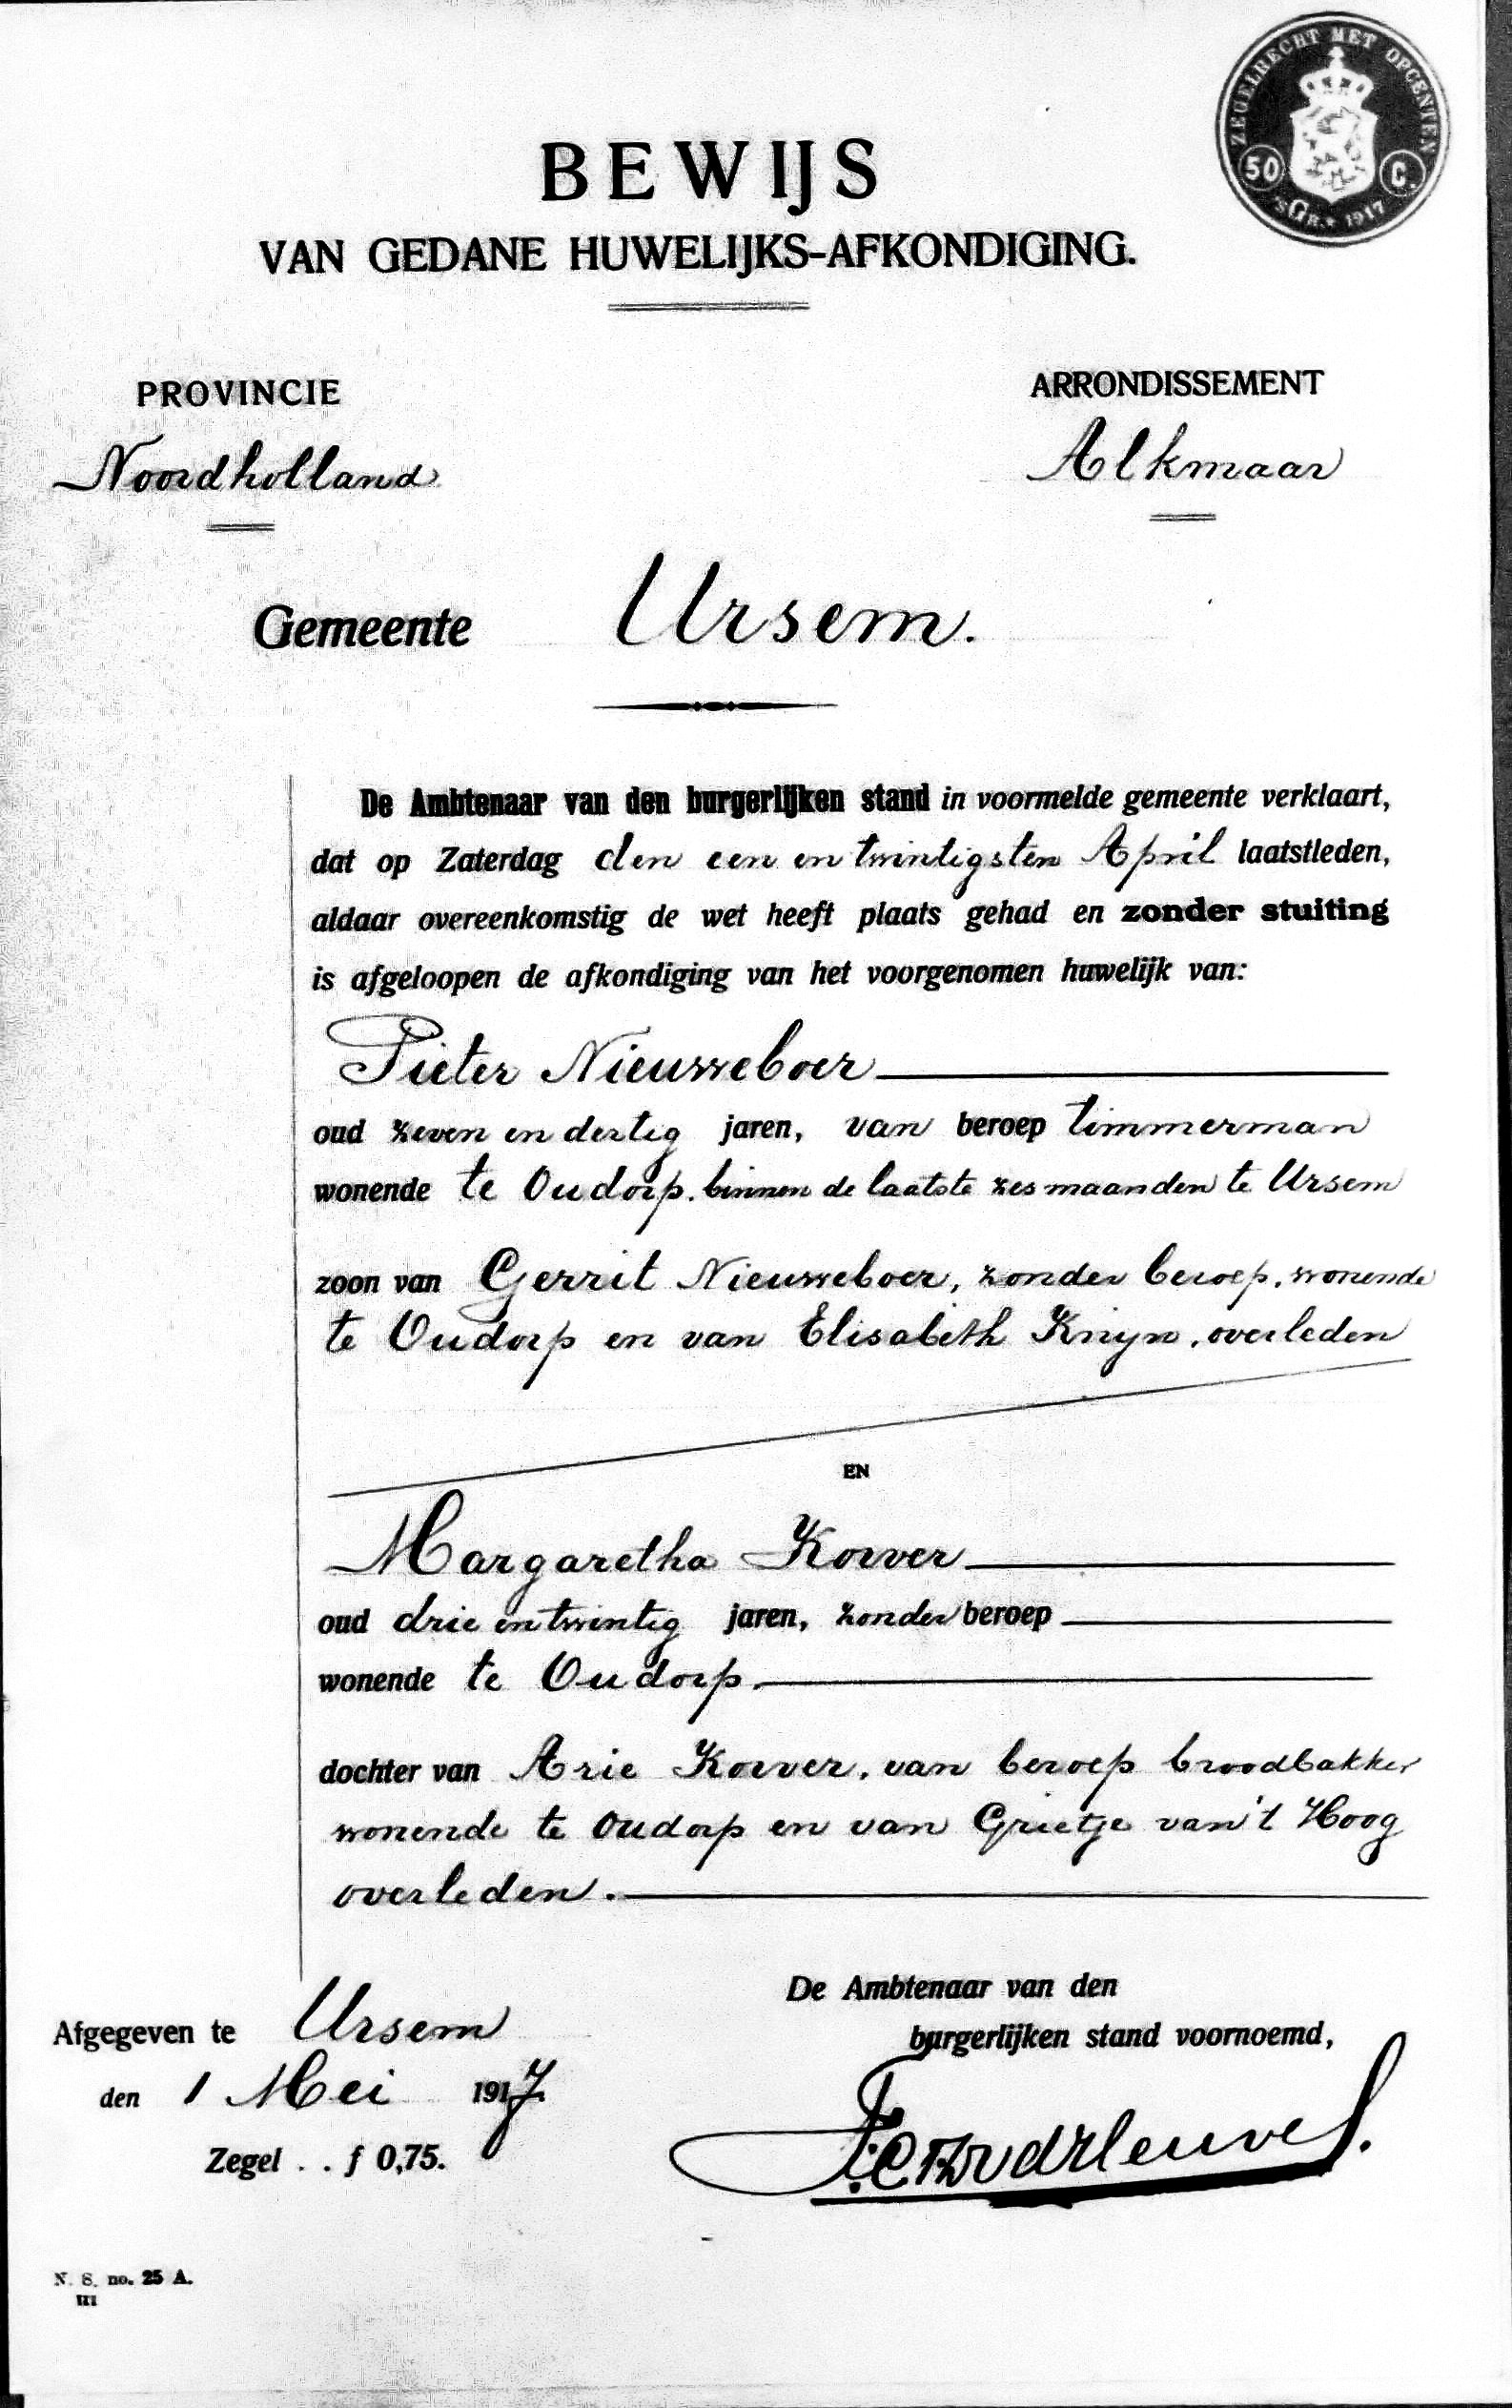 ZEGELRECHT MET OPCENTEN
50 C.
'SGR. 1917
BEWIJS
VAN GEDANE HUWELIJKS-AFKONDIGING.
PROVINCIE
ARRONDISSEMENT
Noordholland
Alkmaar
Gemeente Ursem.
De Ambtenaar van den burgerlijken stand in voormelde gemeente verklaart,
dat op Zaterdag den een en twintigsten April laatstleden,
aldaar overeenkomstig de wet heeft plaats gehad en zonder stuiting
is afgeloopen de afkondiging van het voorgenomen huwelijk van:
Pieter Nieuweboer
oud zeven en dertig jaren, van beroep timmerman
wonende te Oudorp. binnen de laatste zes maanden te Ursem
zoon van Gerrit Nieuweboer, zonder beroep, wonende
te Oudorp en van Elisabeth Knijn, overleden
EN
Margaretha Korver
oud drie en twintig jaren, zonder beroep
wonende te Oudorp.
dochter van Arie Korver, van beroep broodbakker
wonende te Oudorp en van Grietje van 't Hoog
overleden.
De Ambtenaar van den
burgerlijken stand voornoemd,
Afgegeven te Ursem
den 1 Mei 1917.
Zegel . . f 0,75.
N. S. no. 25 A.
III